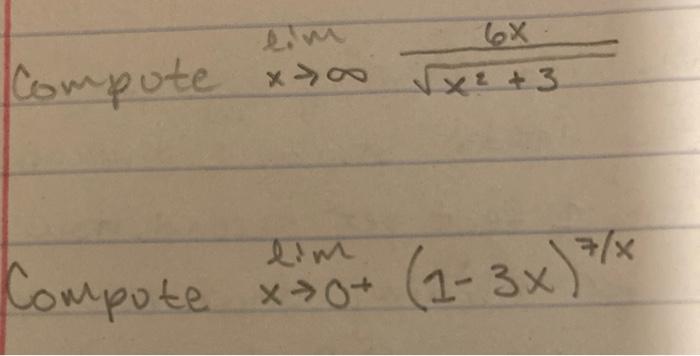 Compute lim x→∞ 6x / √(x² + 3)
Compute lim x→0+ (1-3x)^7/x